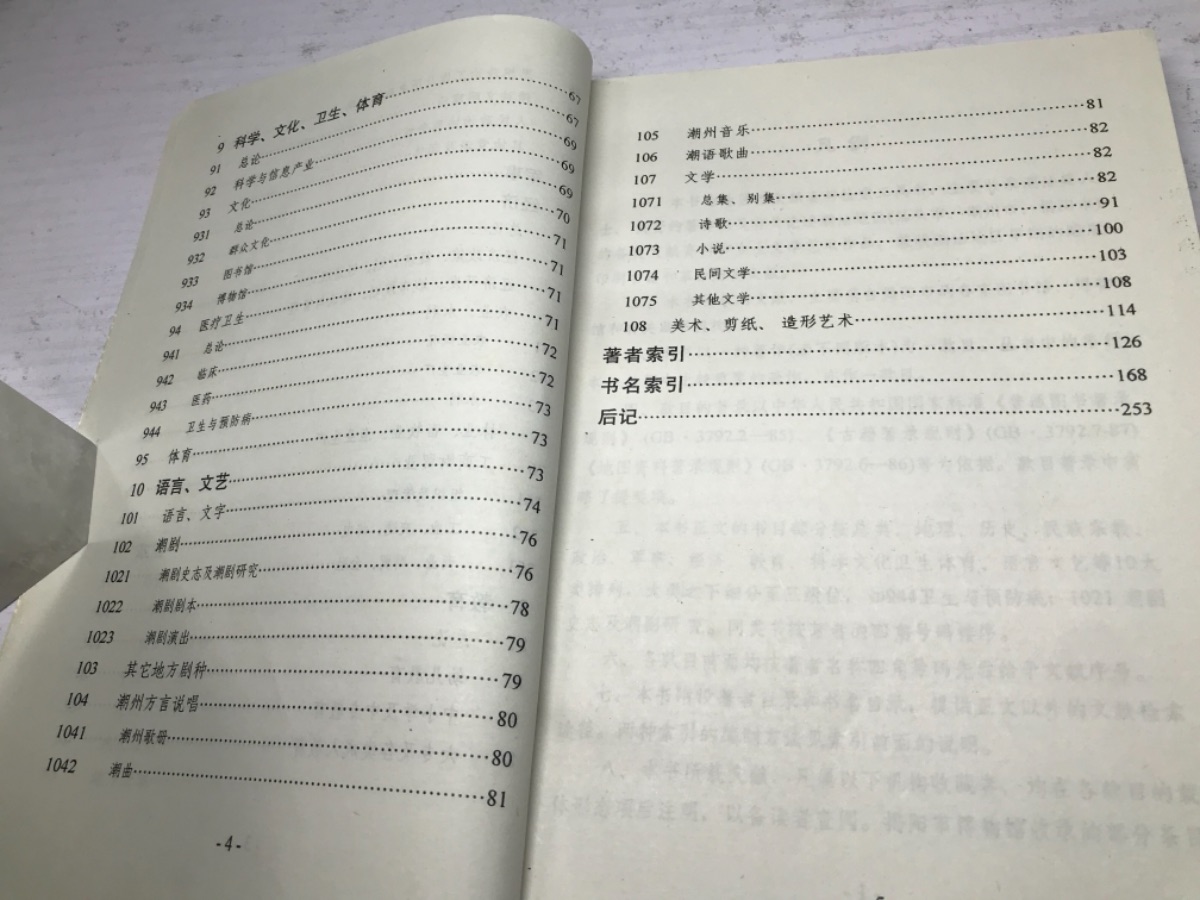 9 科学、文化、卫生、体育……67
91 总论……67
92 科学与信息产业……69
93 文化……69
931 总论……69
932 群众文化……70
933 图书馆……71
934 博物馆……71
94 医疗卫生……71
941 总论……71
942 临床……72
943 医药……72
944 卫生与预防病……73
95 体育……73
10 语言、文艺……73
101 语言、文字……74
102 潮剧……76
1021 潮剧史志及潮剧研究……76
1022 潮剧剧本……78
1023 潮剧演出……79
103 其它地方剧种……79
104 潮州方言说唱……80
1041 潮州歌册……80
1042 潮曲……81
-4-
105 潮州音乐……81
106 潮语歌曲……82
107 文学……82
1071 总集、别集……82
1072 诗歌……91
1073 小说……100
1074 民间文学……103
1075 其他文学……108
108 美术、剪纸、造形艺术……114
著者索引……126
书名索引……168
后记……253